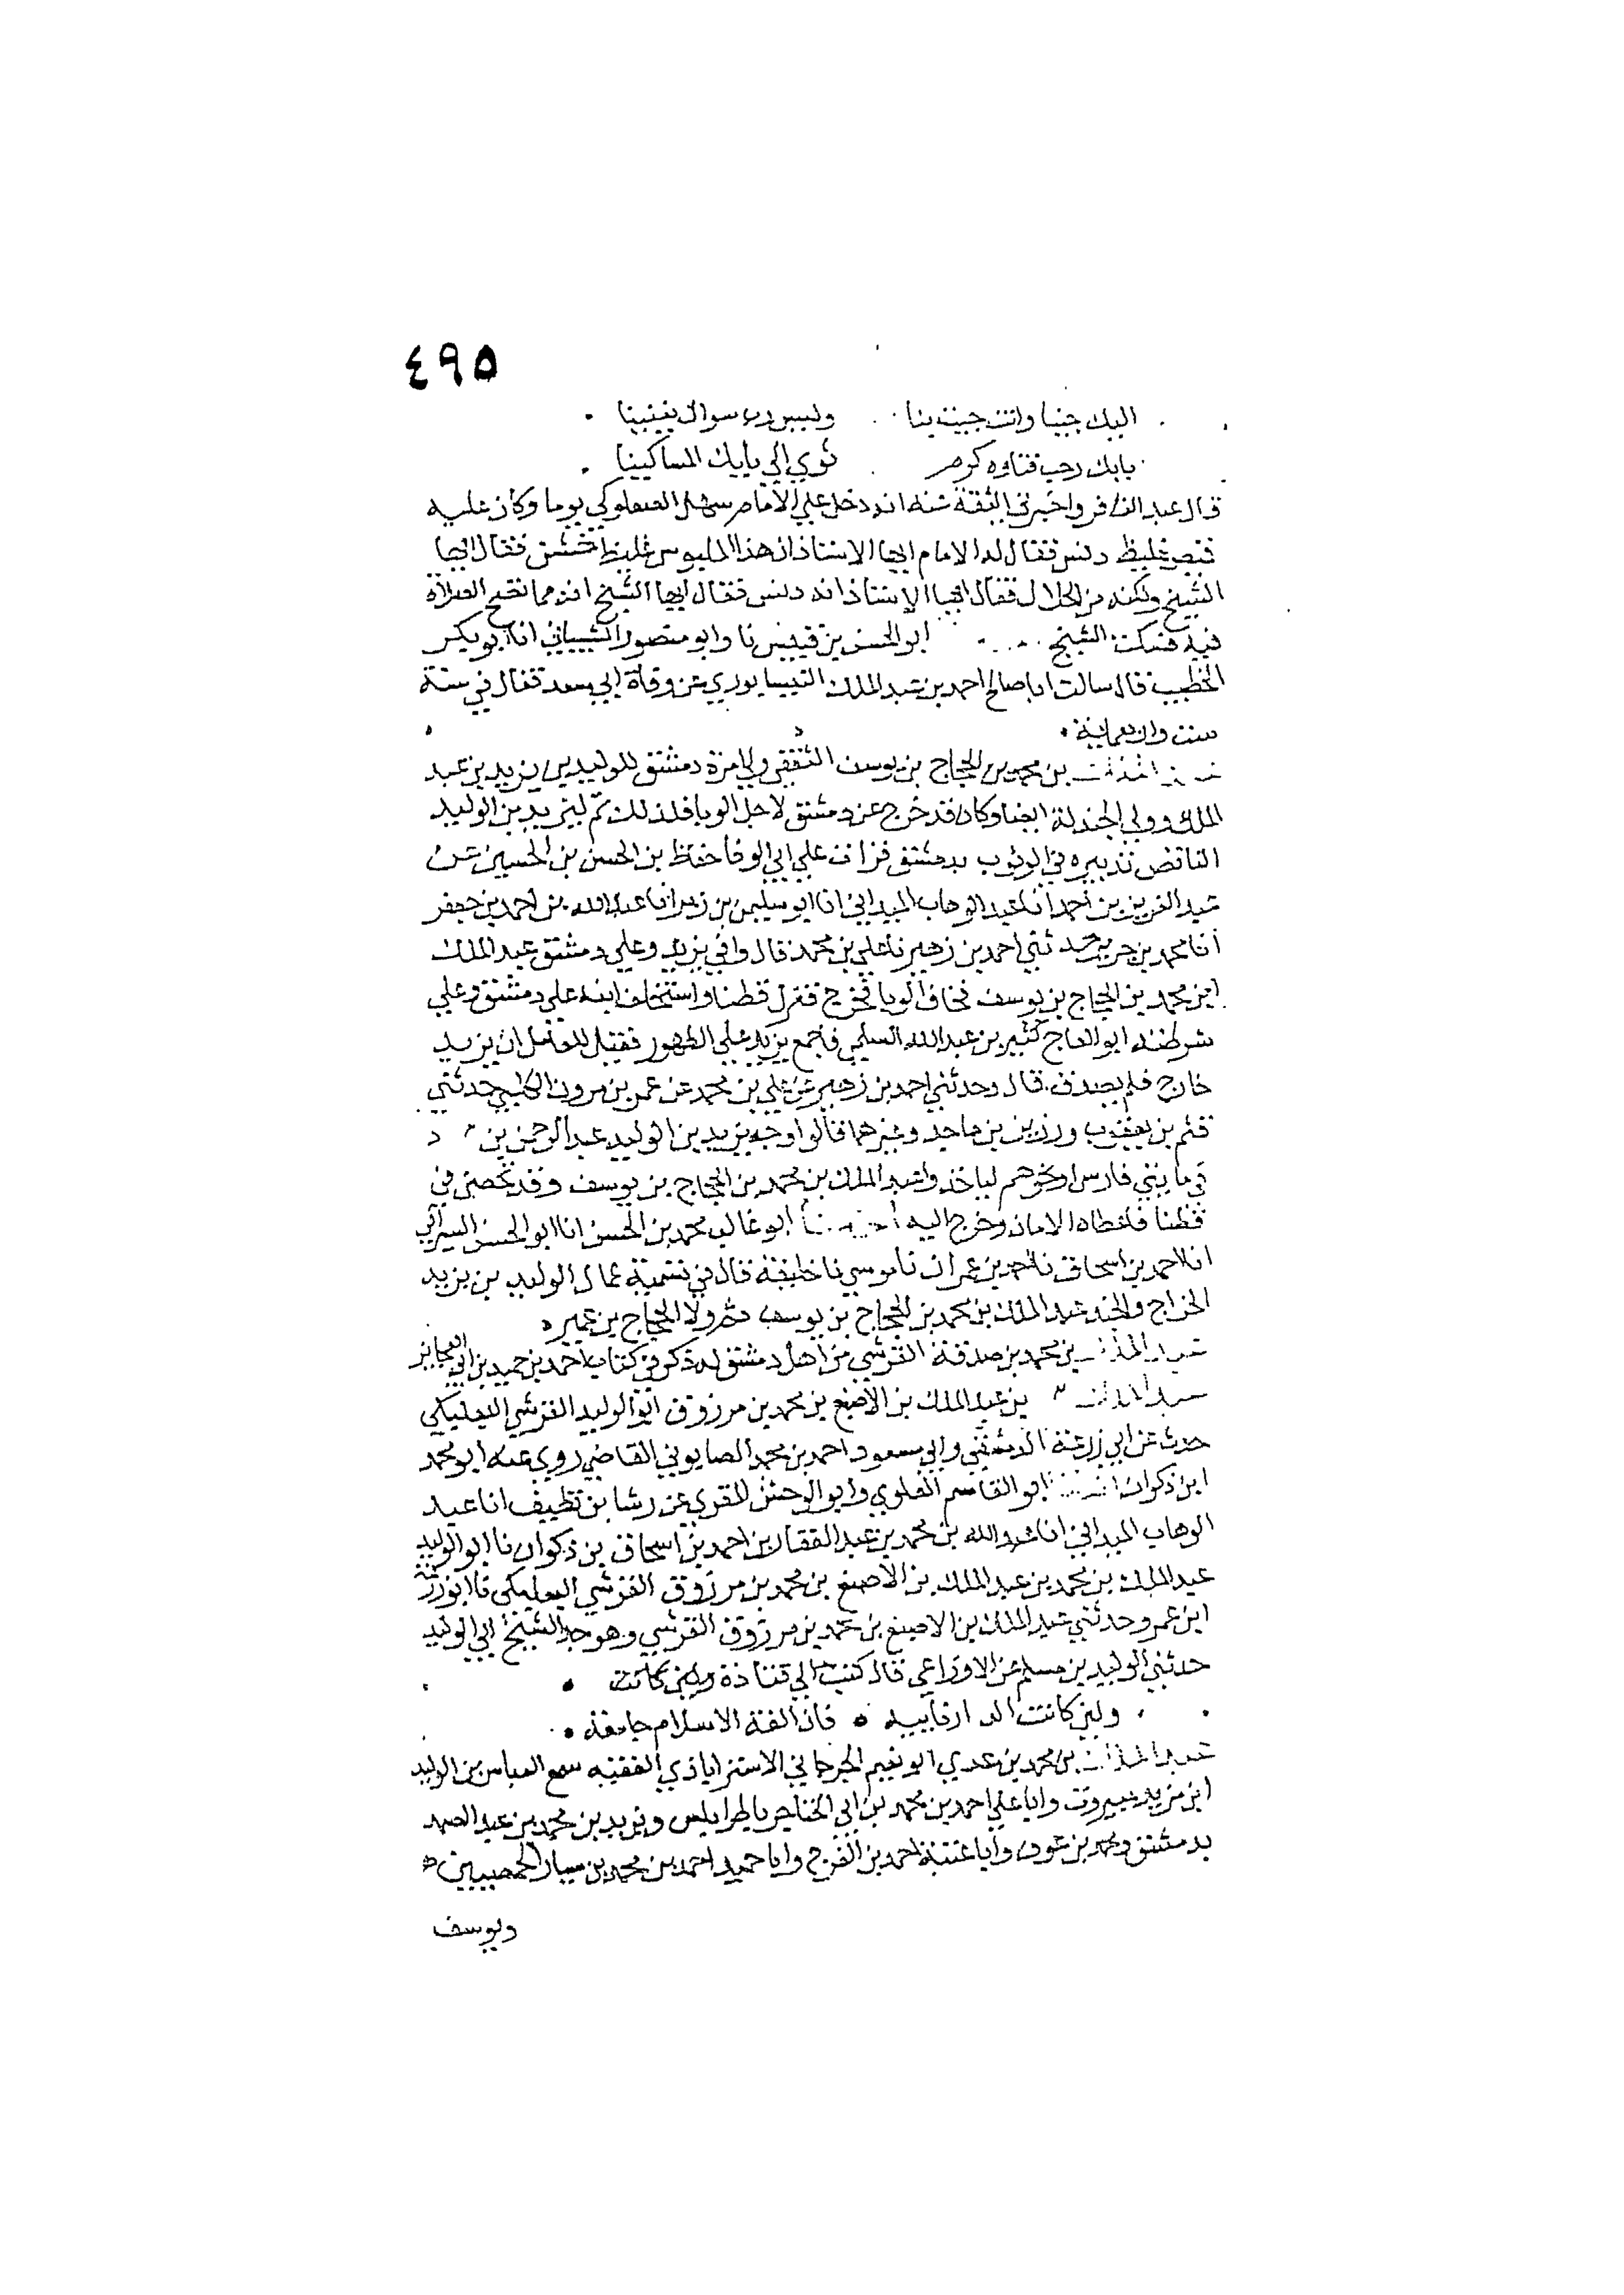 ٤٩٥
اليك جينا وانت جيت بنا وليس رب سواك يغنينا
بابك رحب فناوه كرم توي الي بابك المساكينا
قال عبد الغافر واخبرني الثقة منه انه دخل علي الامام سهل الصعلوكي يوما وكان عليه
قميص غليظ دنس فقال له الامام ايها الاستاذ ان هذا الملبوس غليظ خشن فقال ايها
الشيخ ولكنه من الحلال فقال ايها الاستاذ انه دنس فقال ايها الشيخ انه مما تصح الصلاة
فيه فسكت الشيخ ابو الحسن بن قبيس نا وابو منصور الشيباني انا ابو بكر
الخطيب قال سالت ابا صالح احمد بن عبد الملك النيسابوري عن وفاة ابي سعد فقال في سنة
ست واربعماية
عبد الملك بن محمد بن الحجاج بن يوسف الثقفي ولي امرة دمشق للوليد بن يزيد بن عبد
الملك وولي الجند له ايضا وكان قد خرج عن دمشق لاجل الوبا فلذلك تم ليزيد بن الوليد
الناقص تدبيره في الوثوب بدمشق قرات علي ابي الوفا حفاظ بن الحسن بن الحسين عن
عبد العزيز بن احمد انا عبد الوهاب الميداني انا ابو سليمن بن زبر انا عبد الله بن احمد بن جعفر
انا محمد بن جرير حدثني احمد بن زهير نا علي بن محمد قال وافي يزيد وعلي دمشق عبد الملك
ابن محمد بن الحجاج بن يوسف فخاف الوبا فخرج فنزل قطنا واستخلف ابنه علي دمشق وعلي
شرطته ابو العاج كثير بن عبد الله السلمي فاجمع يزيد علي الظهور فقيل للعامل ان يزيد
خارج فلم يصدق قال وحدثني احمد بن زهير عن علي بن محمد عن عمر بن مرون الكلبي حدثني
قثم بن يعقوب ورزين بن ماجد وغيرهما قالوا وجه يزيد بن الوليد عبد الرحمن بن
في مايتي فارس او نحوهم لياخذوا عبد الملك بن محمد بن الحجاج بن يوسف وقد تحصن في
قطنا فاعطاه الامان وخرج اليه ابو غالب محمد بن الحسن انا ابو الحسن السيرافي
انا احمد بن اسحاق نا احمد بن عمران نا موسي نا خليفة قال في تسمية عمال الوليد بن يزيد
الخراج والجند عبد الملك بن محمد بن الحجاج بن يوسف ثم ولا الحجاج بن عمير
عبد الملك بن محمد بن صدقة القرشي من اهل دمشق له ذكر في كتاب احمد بن حميد بن ابي العجايز
عبد الملك بن عبد الملك بن الاصبغ بن محمد بن مرزوق ابو الوليد القرشي البعلبكي
حدث عن ابي زرعة الدمشقي وابي مسعود احمد بن محمد الصابوني القاضي روي عنه ابو محمد
ابن ذكوان ابو القاسم العلوي وابو الوحش المقري عن رشا بن نظيف انا عبد
الوهاب الميداني انا عبد الله بن محمد بن عبد الغفار بن احمد بن اسحاق بن ذكوان نا ابو الوليد
عبد الملك بن محمد بن عبد الملك بن الاصبغ بن محمد بن مرزوق القرشي البعلبكي نا ابو زرعة
ابن عمرو حدثني عبد الملك بن الاصبغ بن محمد بن مرزوق القرشي وهو جد الشيخ ابي الوليد
حدثني الوليد بن مسلم عن الاوزاعي قال كتب الي قتادة
ولين كانت الدار فان الفة الاسلام جامعة
عبد الملك بن محمد بن عدي ابو نعيم الجرجاني الاستراباذي الفقيه سمع العباس بن الوليد
ابن مزيد ببيروت وابا علي احمد بن محمد بن ابي الخناجر باطرابلس ويزيد بن محمد بن عبد الصمد
بدمشق ومحمد بن عوف وابا عتبة احمد بن الفرج وابا حميد احمد بن محمد بن سيار الحمصيين
ويوسف